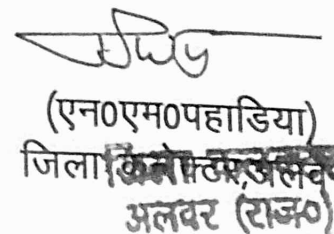 (एन0एम0पहाडिया)
जिला कलेक्टर,अलवर
अलवर (राज0)